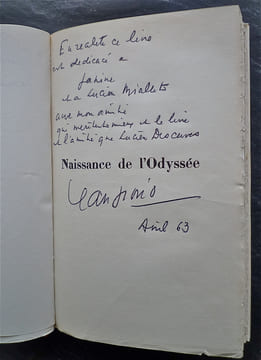 En realité ce livre
est dedicacé a
Janine
et a Lucien Miallet
avec mon amitié
qui meritent mieux et le livre
et l'amitié que Lucien Descaves
Naissance de l'Odyssée
Jean Giono
Avril 63